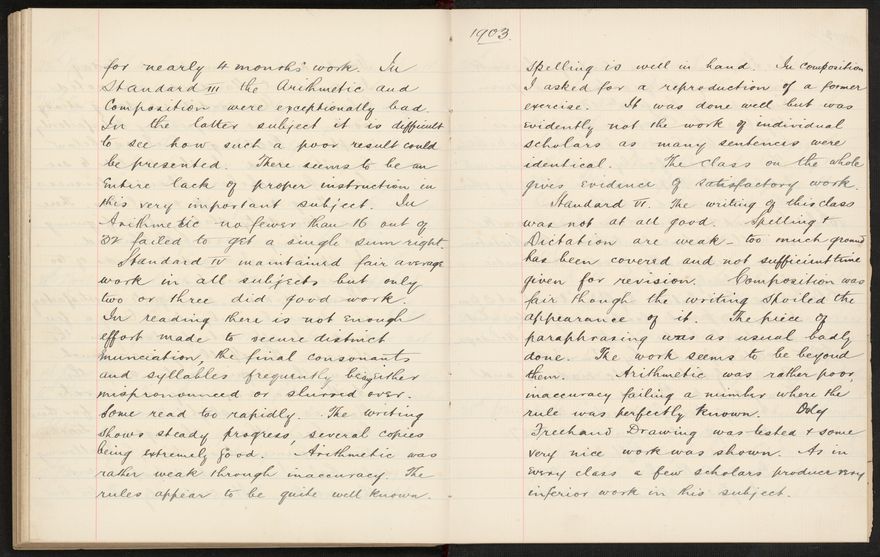 for nearly 4 months' work. In
Standard III the Arithmetic and
Composition were exceptionally bad.
In the latter subject it is difficult
to see how such a poor result could
be presented. There seems to be an
entire lack of proper instruction in
this very important subject. In
Arithmetic no fewer than 16 out of
32 failed to get a single sum right.
Standard IV maintained fair average
work in all subjects but only
two or three did good work.
In reading there is not enough
effort made to secure distinct
enunciation, the final consonants
and syllables frequently being either
mispronounced or slurred over.
Some read too rapidly. The writing
shows steady progress, several copies
being extremely good. Arithmetic was
rather weak through inaccuracy. The
rules appear to be quite well known.
1903.
Spelling is well in hand. In composition
I asked for a reproduction of a former
exercise. It was done well but was
evidently not the work of individual
scholars as many sentences were
identical. The class on the whole
gives evidence of satisfactory work.
Standard VI. The writing of this class
was not at all good. Spelling &
Dictation are weak - too much ground
has been covered and not sufficient time
given for revision. Composition was
fair though the writing spoiled the
appearance of it. The piece of
paraphrasing was as usual badly
done. The work seems to be beyond
them. Arithmetic was rather poor,
inaccuracy failing a number where the
rule was perfectly known. Only
Freehand Drawing was tested & some
very nice work was shown. As in
every class a few scholars produce very
inferior work in this subject.